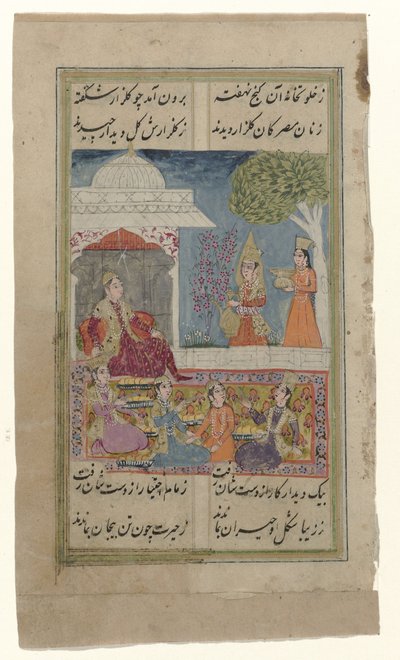 ز خلوتخانهٔ آن کنج نهفته برون آمد چو کلزار شکفته
زنان مصر کان کلزار دیدند ز کلزارش کل دیدار چیدند
بیک دیدار کار از دست شان رفت زمام اختیار از دست شان رفت
ز زیبا شکل او حیران بماندند ز حیرت چون تن بیجان بماندند